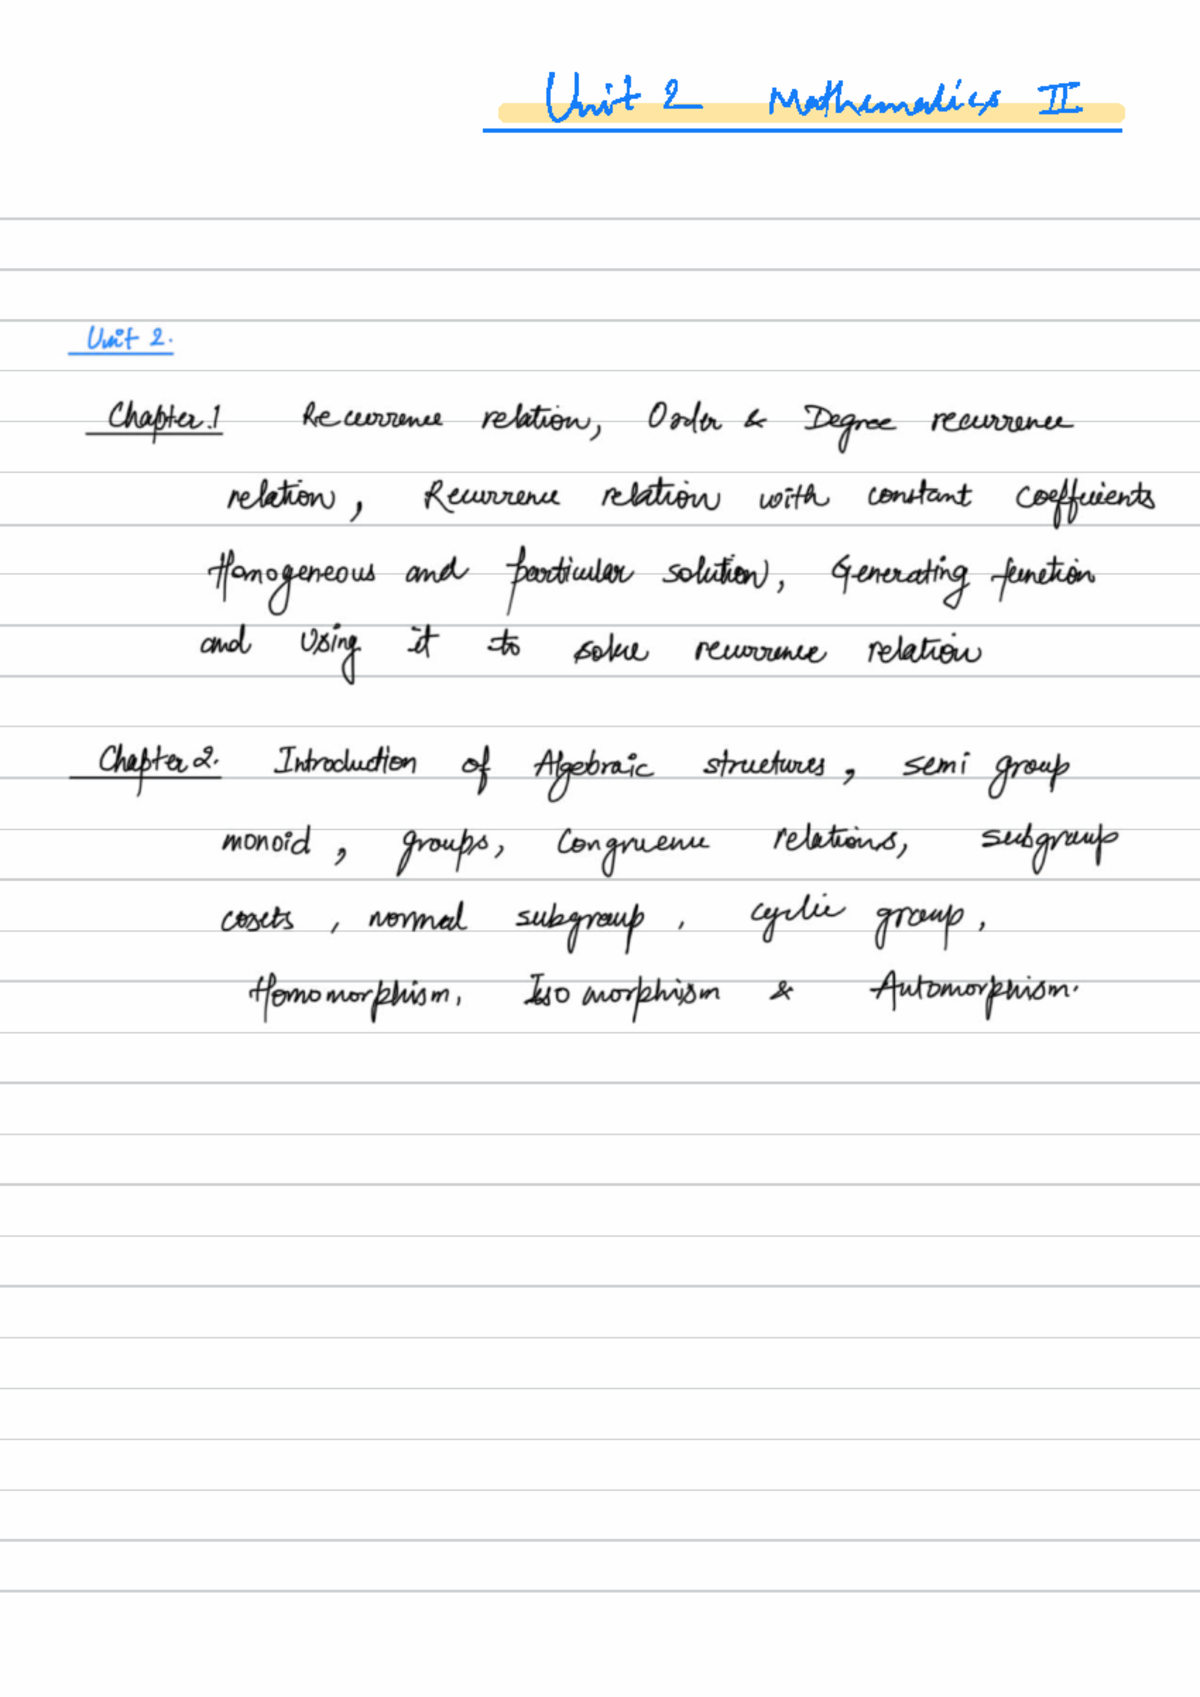 Unit 2 Mathematics II
Unit 2.
Chapter.1 Recurrence relation, Order & Degree recurrence
relation, Recurrence relation with constant coefficients
Homogeneous and particular solution, Generating function
and Using it to solve recurrence relation
Chapter 2. Introduction of Algebraic structures, semi group
monoid, groups, Congruence relations, subgroup
cosets, normal subgroup, cyclic group,
Homomorphism, Isomorphism & Automorphism.